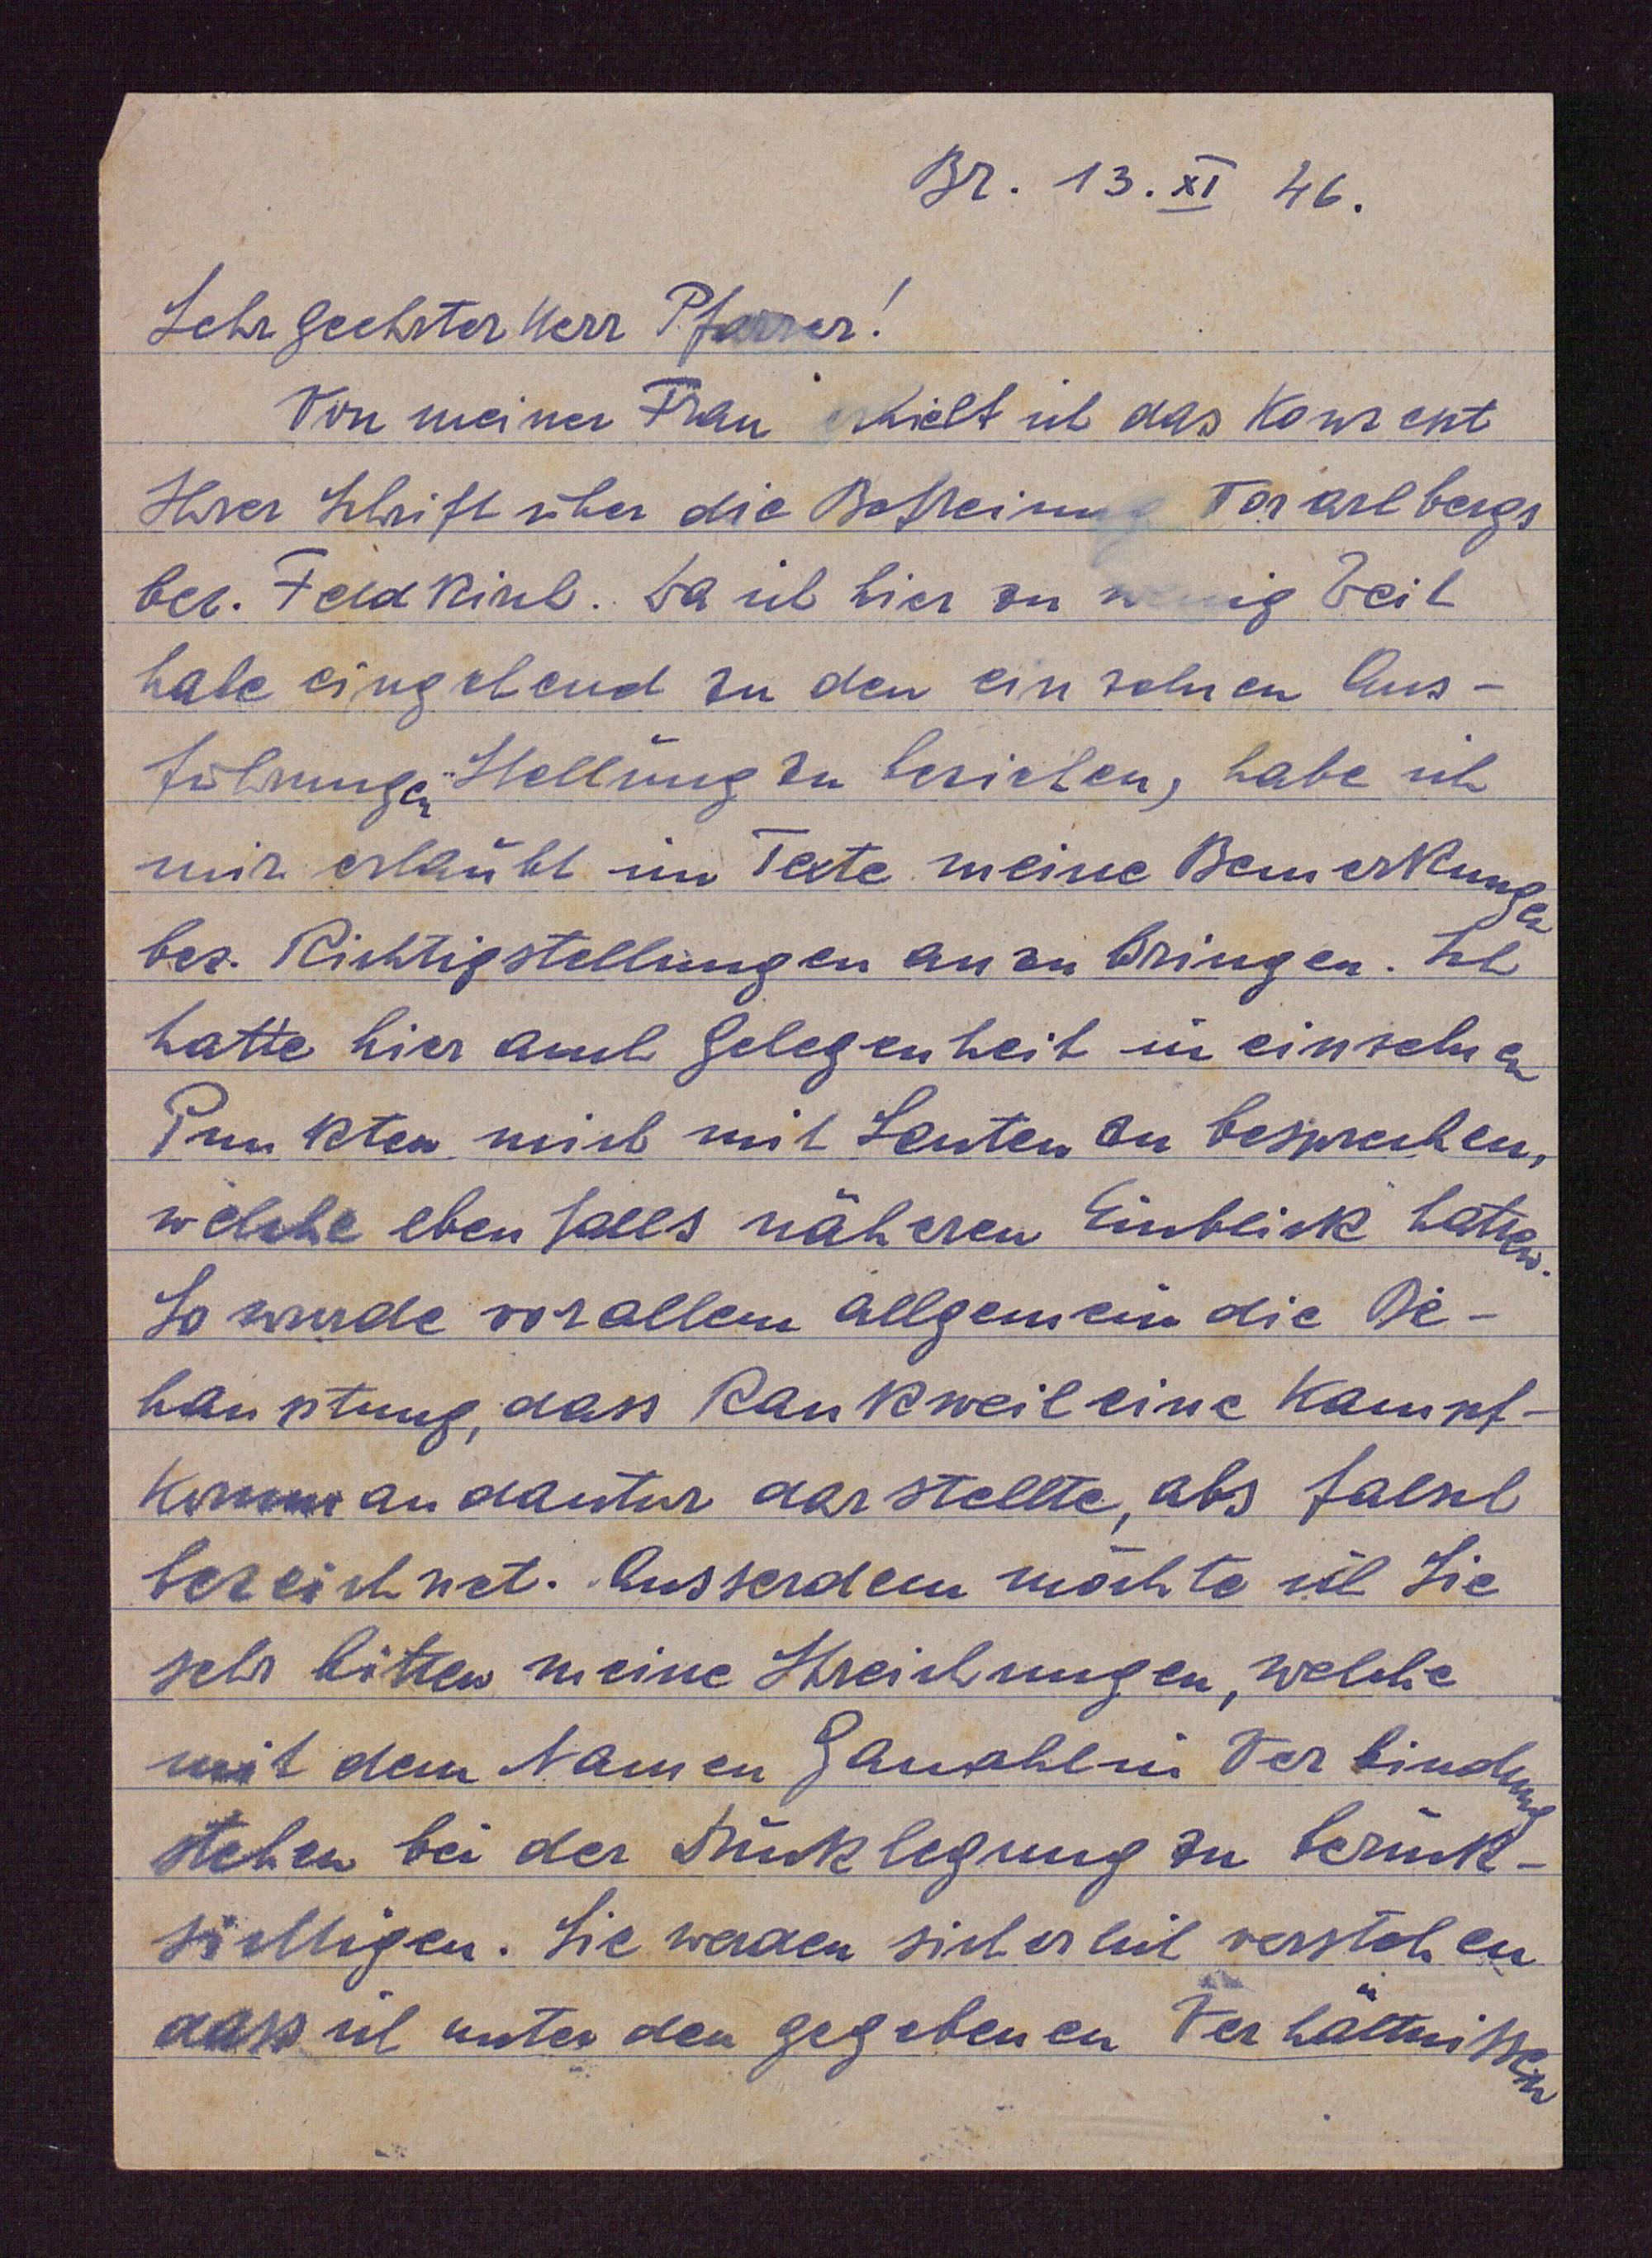 Br. 13. XI 46.
Sehr geehrter Herr Pfarrer!
Von meiner Frau erhielt ich das Konzept
Ihrer Schrift über die Befreiung Vorarlbergs
bez. Feldkirch. Da ich hier zu wenig Zeit
habe eingehend zu den einzelnen Aus-
führungen Stellung zu beziehen, habe ich
mir erlaubt im Texte meine Bemerkungen
bez. Richtigstellungen anzubringen. Ich
hatte hier auch Gelegenheit in einzelnen
Punkten mich mit Leuten zu besprechen,
welche ebenfalls näheren Einblick hatten.
So wurde vorallem allgemein die Be-
hauptung, dass Rankweil eine Kampf-
kommandantur darstellte, als falsch
bezeichnet. Ausserdem möchte ich Sie
sehr bitten meine Streichungen, welche
mit dem Namen Ganahl in Verbindung
stehen bei der Drucklegung zu berück-
sichtigen. Sie werden sicherlich verstehen
dass ich unter den gegebenen Verhältnissen